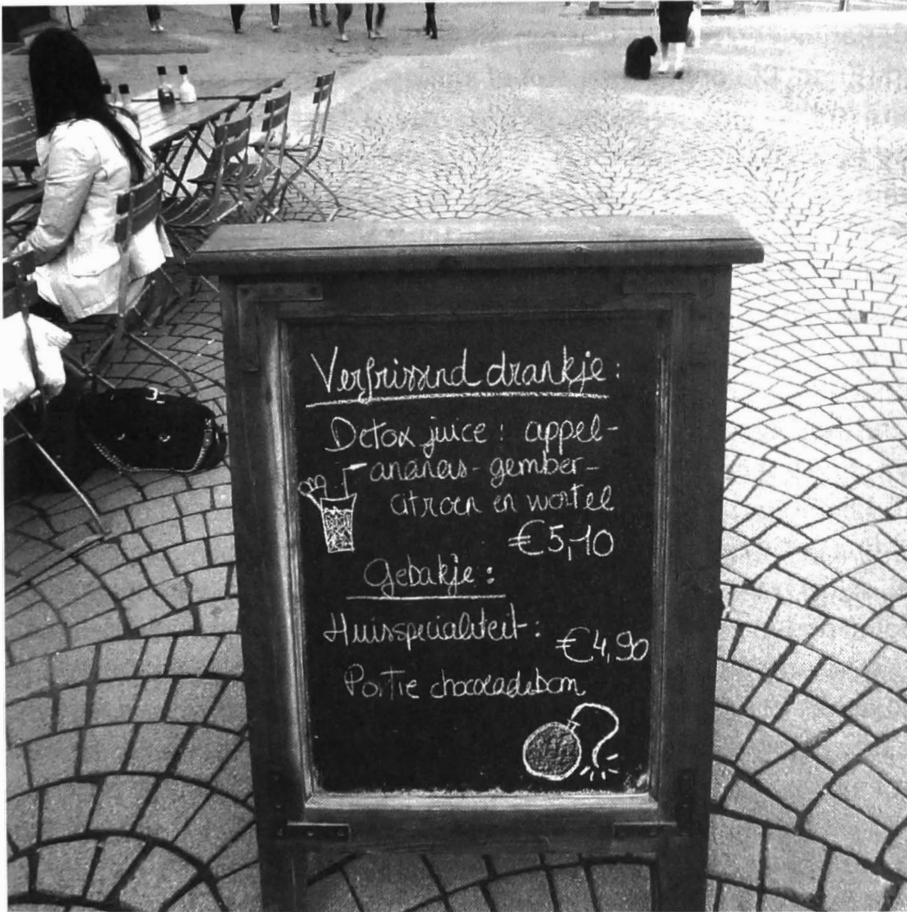 Verfrissend drankje:
Detox juice: appel-
ananas-gember-
citroen en wortel
€5,10
Gebakje:
Huisspecialiteit:
€4,90
Portie chocoladebom